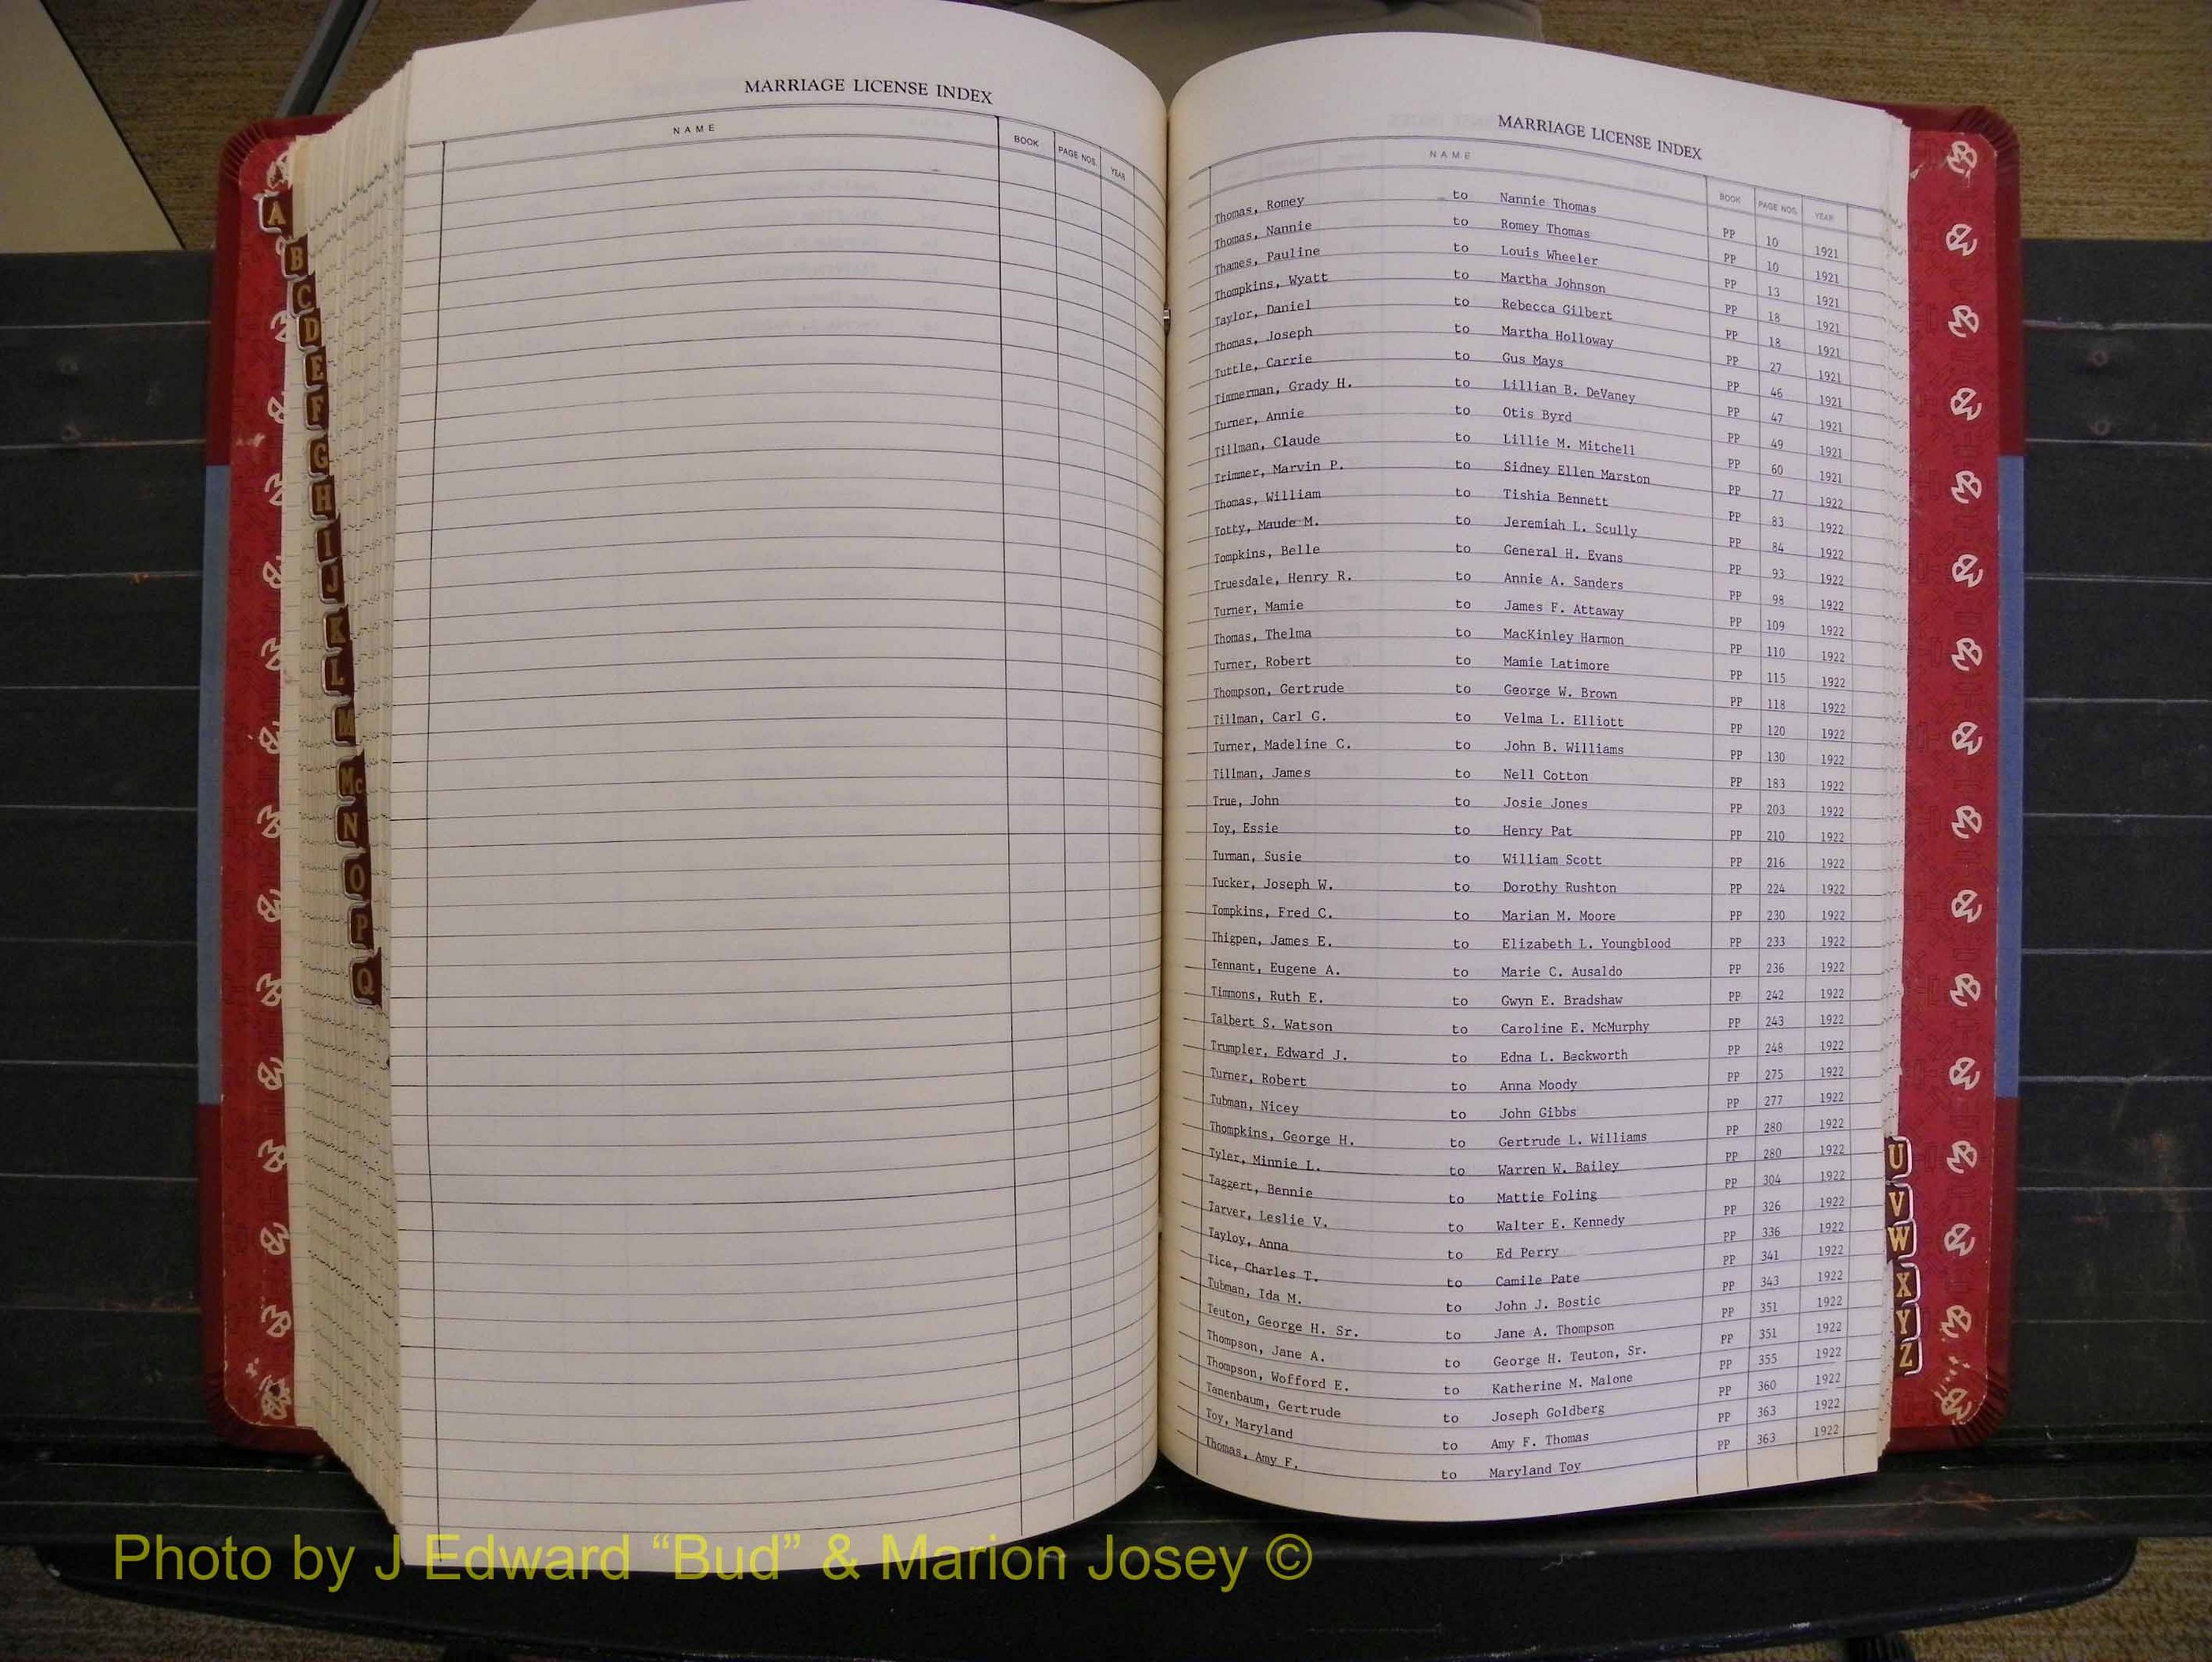 MARRIAGE LICENSE INDEX
NAME BOOK PAGE NOS. YEAR
MARRIAGE LICENSE INDEX
NAME BOOK PAGE NOS. YEAR
Thomas, Romey to Nannie Thomas PP 10 1921
Thomas, Nannie to Romey Thomas PP 10 1921
Thames, Pauline to Louis Wheeler PP 13 1921
Thompkins, Wyatt to Martha Johnson PP 18 1921
Taylor, Daniel to Rebecca Gilbert PP 18 1921
Thomas, Joseph to Martha Holloway PP 27 1921
Tuttle, Carrie to Gus Mays PP 46 1921
Timmerman, Grady H. to Lillian B. DeVaney PP 47 1921
Turner, Annie to Otis Byrd PP 49 1921
Tillman, Claude to Lillie M. Mitchell PP 60 1921
Trimmer, Marvin P. to Sidney Ellen Marston PP 77 1922
Thomas, William to Tishia Bennett PP 83 1922
Totty, Maude M. to Jeremiah L. Scully PP 84 1922
Tompkins, Belle to General H. Evans PP 93 1922
Truesdale, Henry R. to Annie A. Sanders PP 98 1922
Turner, Mamie to James F. Attaway PP 109 1922
Thomas, Thelma to MacKinley Harmon PP 110 1922
Turner, Robert to Mamie Latimore PP 115 1922
Thompson, Gertrude to George W. Brown PP 118 1922
Tillman, Carl G. to Velma L. Elliott PP 120 1922
Turner, Madeline C. to John B. Williams PP 130 1922
Tillman, James to Nell Cotton PP 183 1922
True, John to Josie Jones PP 203 1922
Toy, Essie to Henry Pat PP 210 1922
Turman, Susie to William Scott PP 216 1922
Tucker, Joseph W. to Dorothy Rushton PP 224 1922
Tompkins, Fred C. to Marian M. Moore PP 230 1922
Thigpen, James E. to Elizabeth L. Youngblood PP 233 1922
Tennant, Eugene A. to Marie C. Ausaldo PP 236 1922
Timmons, Ruth E. to Gwyn E. Bradshaw PP 242 1922
Talbert S. Watson to Caroline E. McMurphy PP 243 1922
Trumpler, Edward J. to Edna L. Beckworth PP 248 1922
Turner, Robert to Anna Moody PP 275 1922
Tubman, Nicey to John Gibbs PP 277 1922
Thompkins, George H. to Gertrude L. Williams PP 280 1922
Tyler, Minnie L. to Warren W. Bailey PP 280 1922
Taggert, Bennie to Mattie Foling PP 304 1922
Tarver, Leslie V. to Walter E. Kennedy PP 326 1922
Tayloy, Anna to Ed Perry PP 336 1922
Tice, Charles T. to Camile Pate PP 341 1922
Tubman, Ida M. to John J. Bostic PP 343 1922
Teuton, George H. Sr. to Jane A. Thompson PP 351 1922
Thompson, Jane A. to George H. Teuton, Sr. PP 351 1922
Thompson, Wofford E. to Katherine M. Malone PP 355 1922
Tanenbaum, Gertrude to Joseph Goldberg PP 360 1922
Toy, Maryland to Amy F. Thomas PP 363 1922
Thomas, Amy F. to Maryland Toy PP 363 1922
A
B
C
D
E
F
G
H
I
J
K
L
M
Mc
N
O
P
Q
U
V
W
X
Y
Z
Photo by J Edward “Bud” & Marion Josey ©